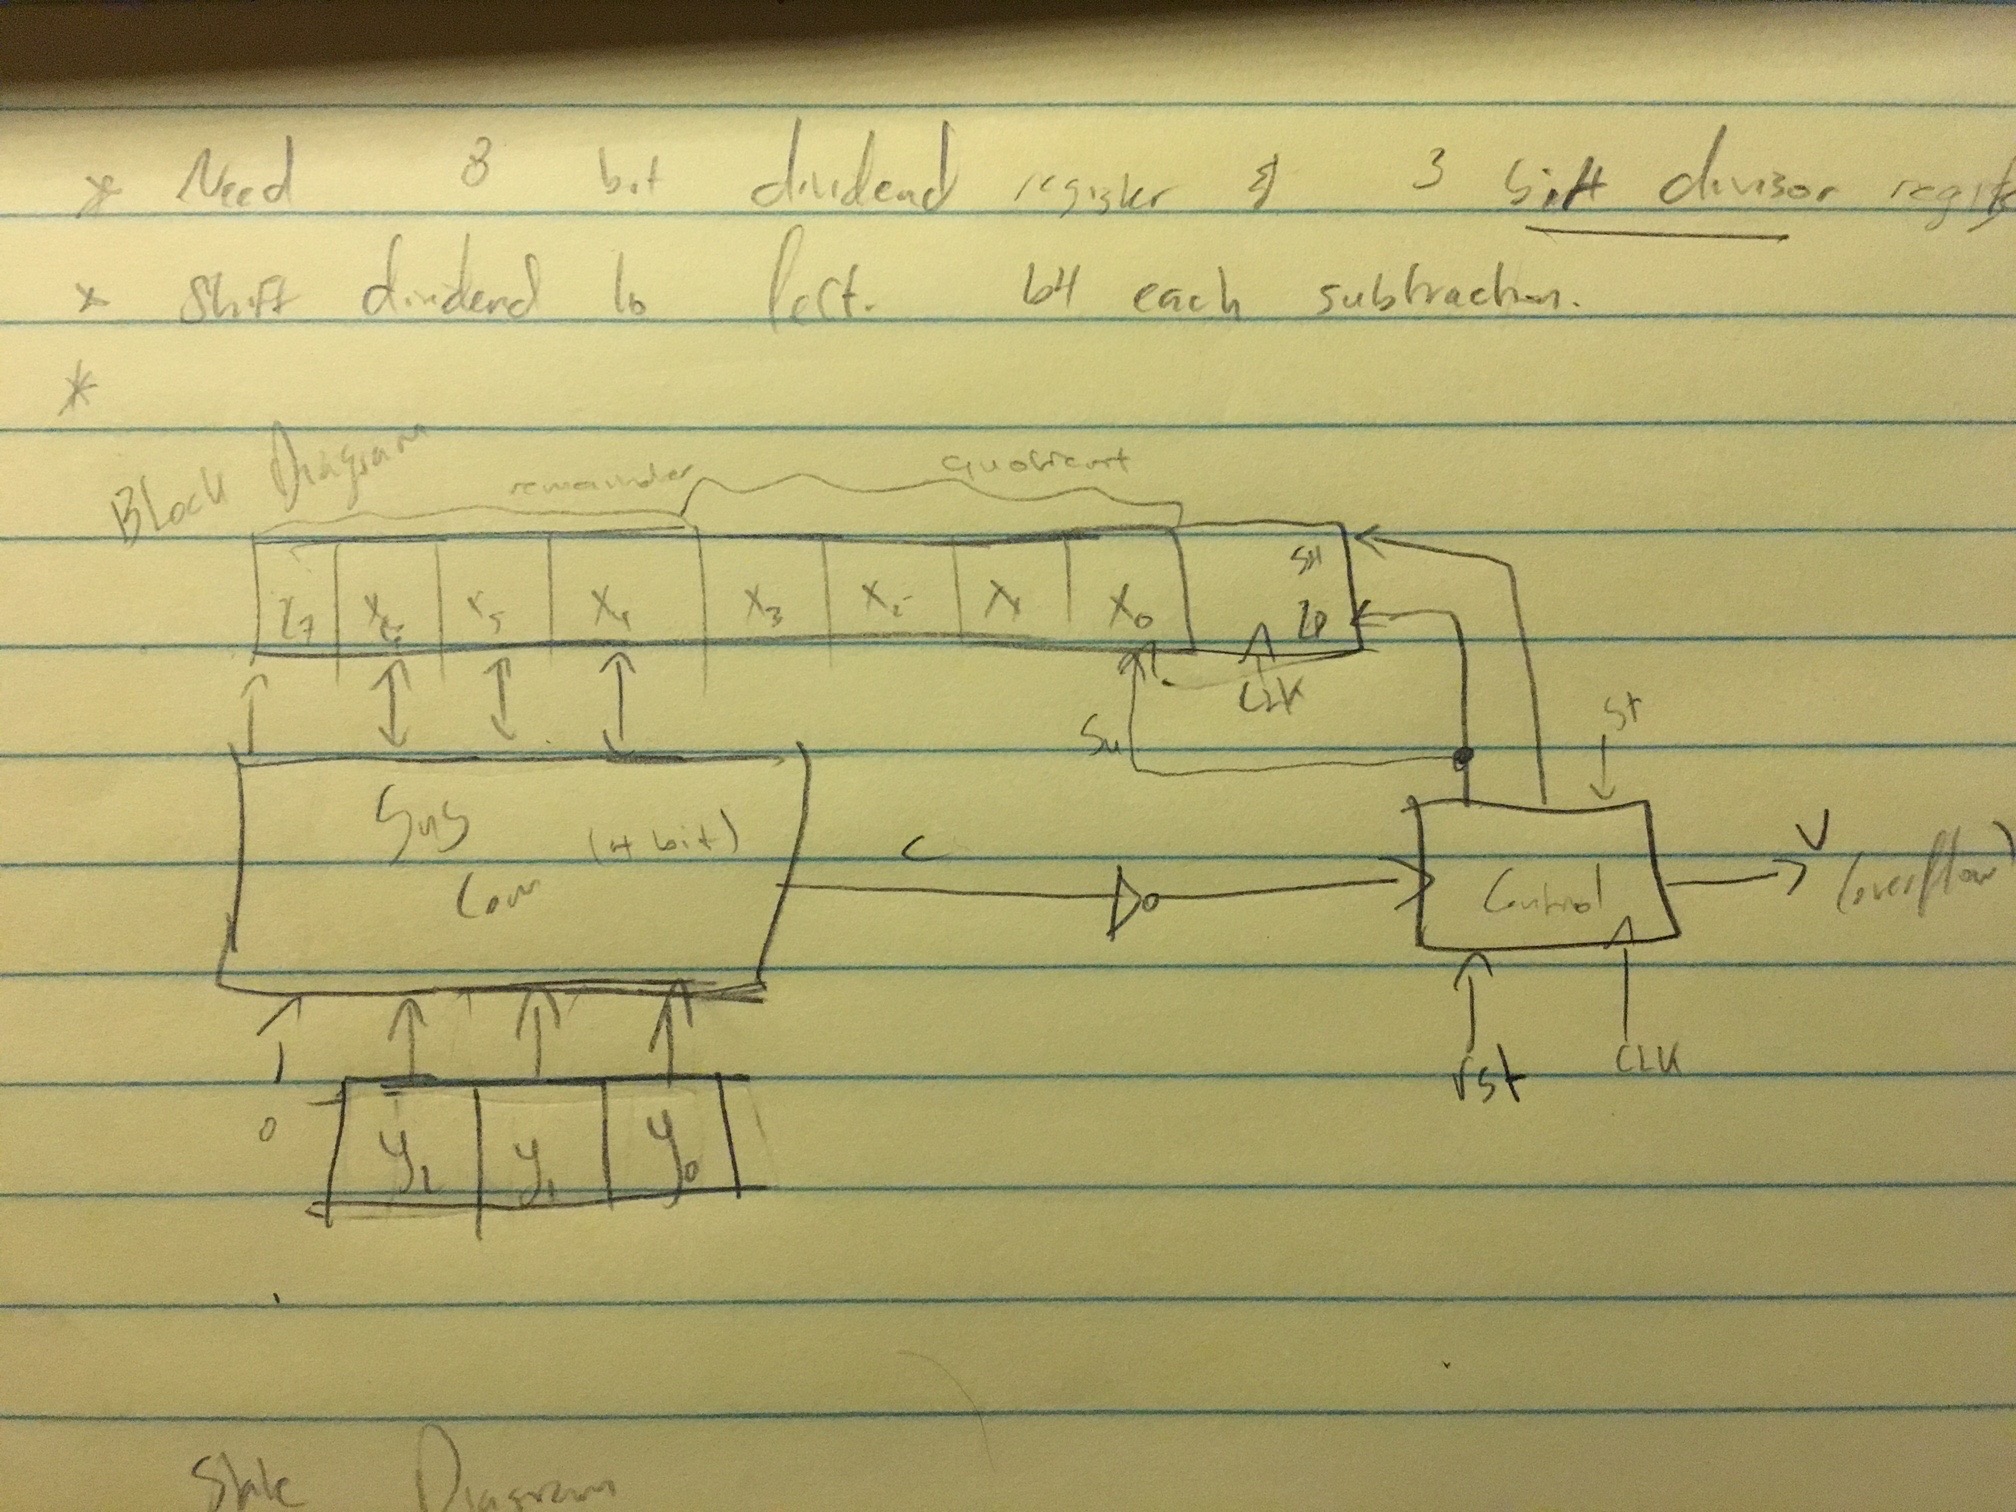 * Need 8 bit dividend register & 3 bit divisor regist
* Shift dividend to left. b4 each subtraction.
*
Block Diagram
remainder quotient
X7 X6 X5 X4 X3 X2 X1 X0 SH
LD
CLK
Su
St
Sub
(4 bit)
Com
C
Control
V
(overflow)
rst
CLK
0
y2 y1 y0
State Diagram